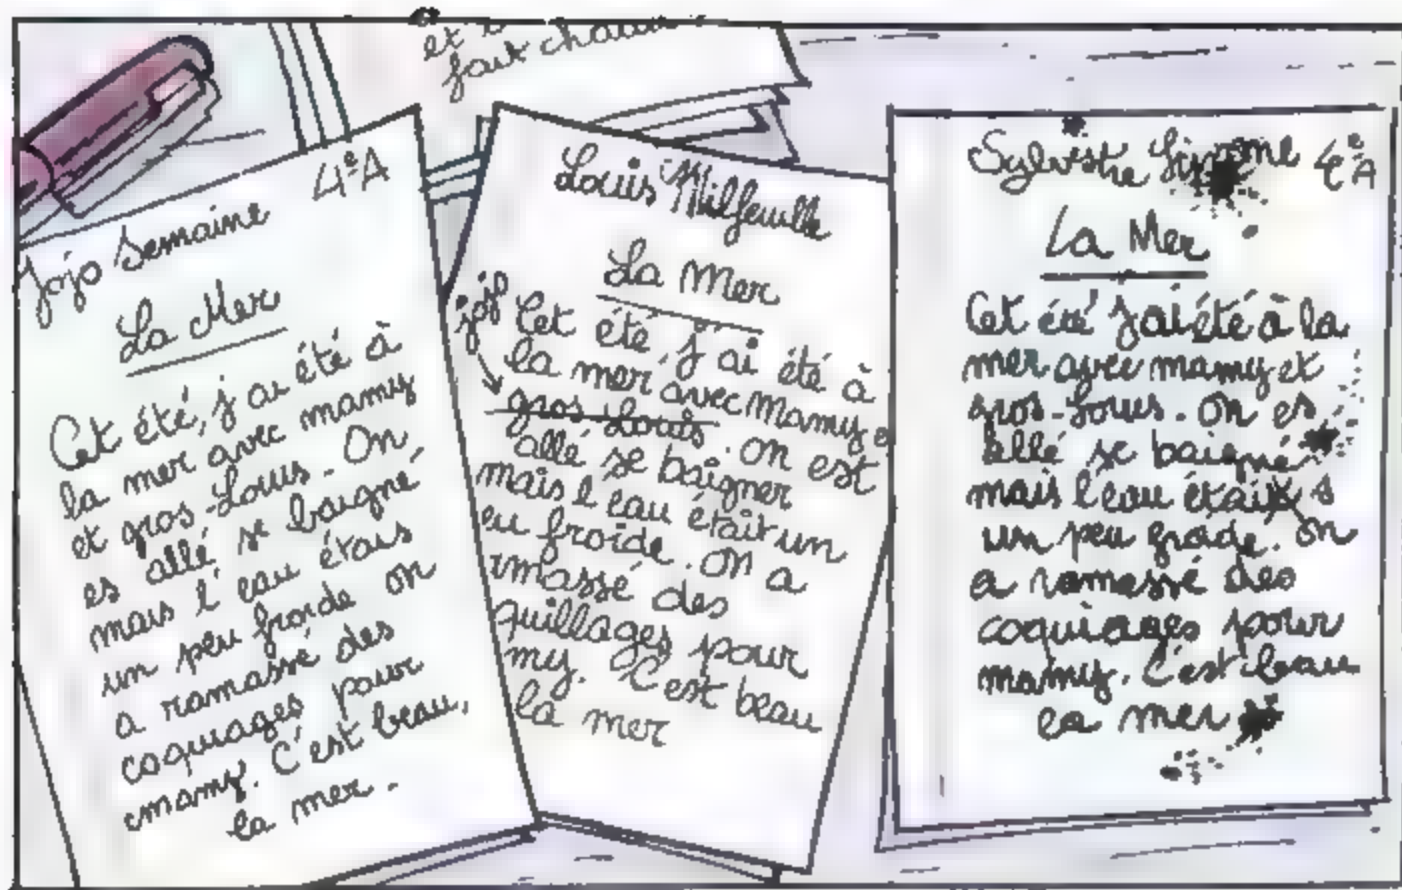 et
fait chaud
Jojo Semaine 4ᵉA
La Mer
Cet été, j'ai été à
la mer avec mamy
et gros-Louis. On
es allé se baigné,
mais l'eau étais
un peu froide on
a ramassé des
coquiages pour
mamy. C'est beau,
la mer.
Louis Milfeuille
La Mer
jojo
Cet été, j'ai été à
la mer avec Mamy e
gros Louis. On est
allé se baigner
mais l'eau était un
eu froide. On a
amassé des
quillages pour
my. C'est beau
la mer
Sylvestre 4ᵉA
La Mer
Cet été j'ai été à la
mer avec mamy et
gros-Louis. On es
allé se baigné
mais l'eau étais
un peu froide. On
a ramassé des
coquiages pour
mamy. C'est beau
la mer